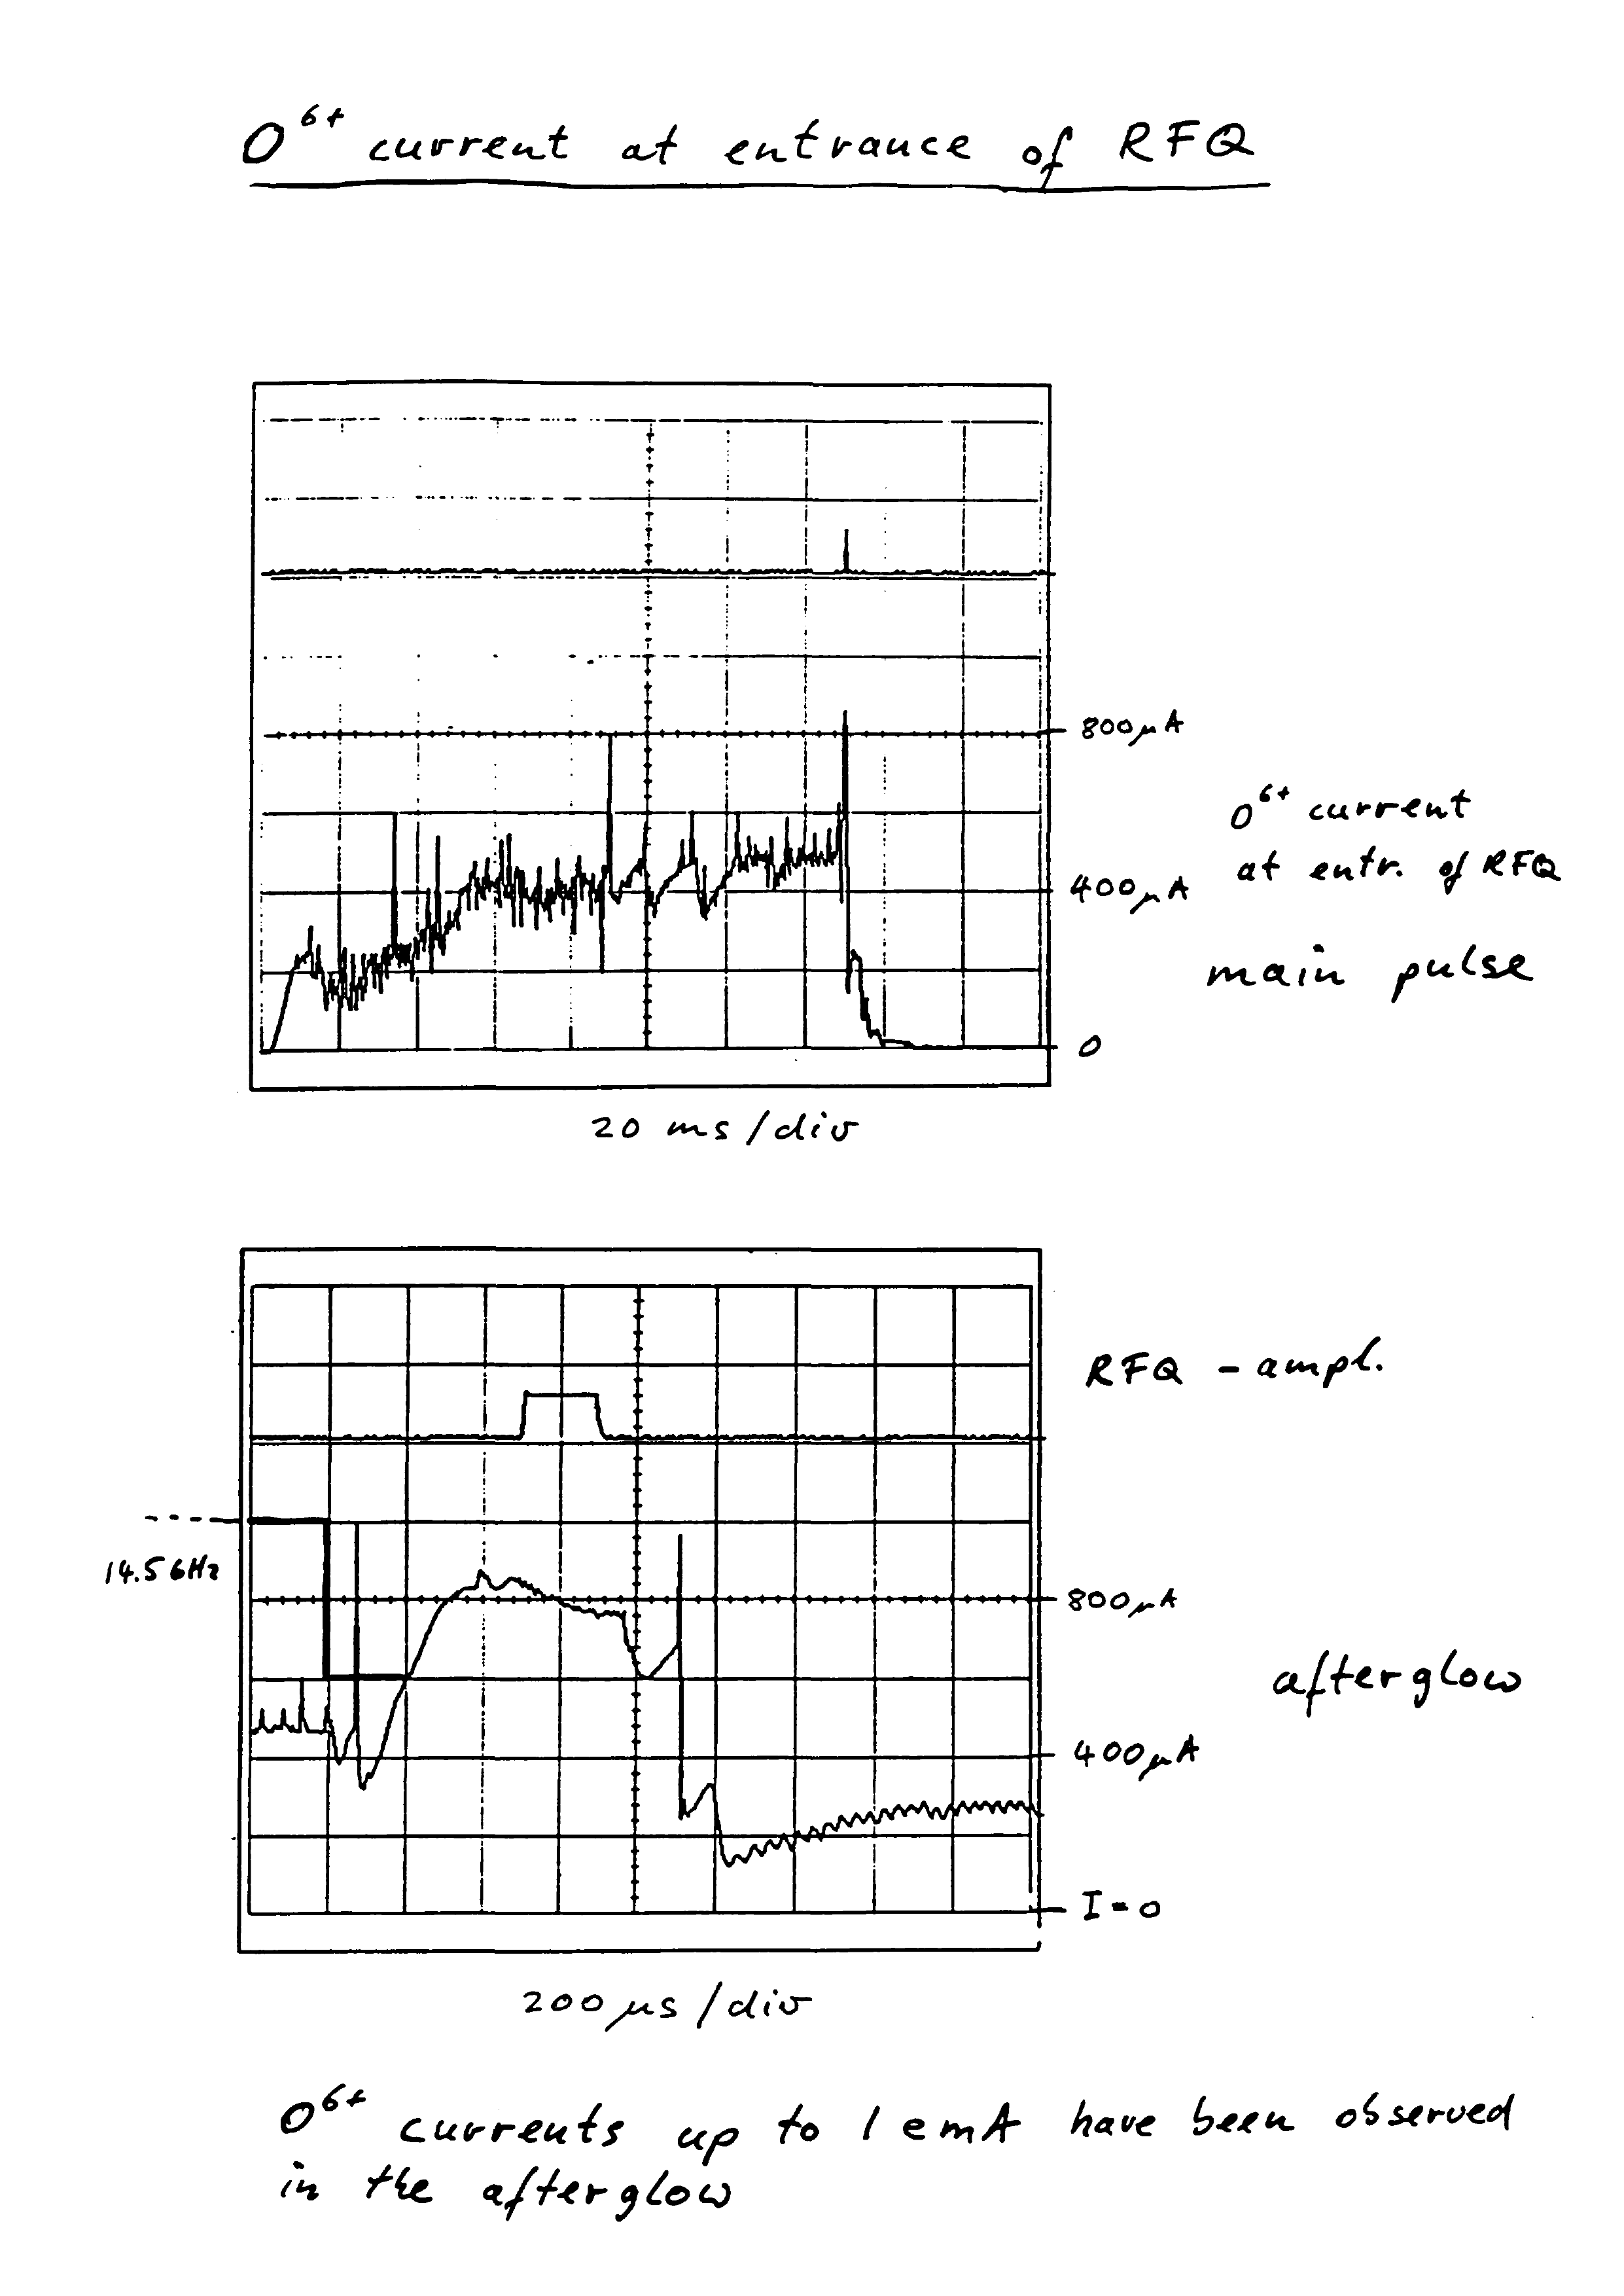 O⁶⁺ current at entrance of RFQ
800μA
O⁶⁺ current
at entr. of RFQ
400μA
main pulse
0
20 ms/div
RFQ - ampl.
14.5 GHz
800μA
afterglow
400μA
I=0
200 μs/div
O⁶⁺ currents up to 1 emA have been observed
in the afterglow